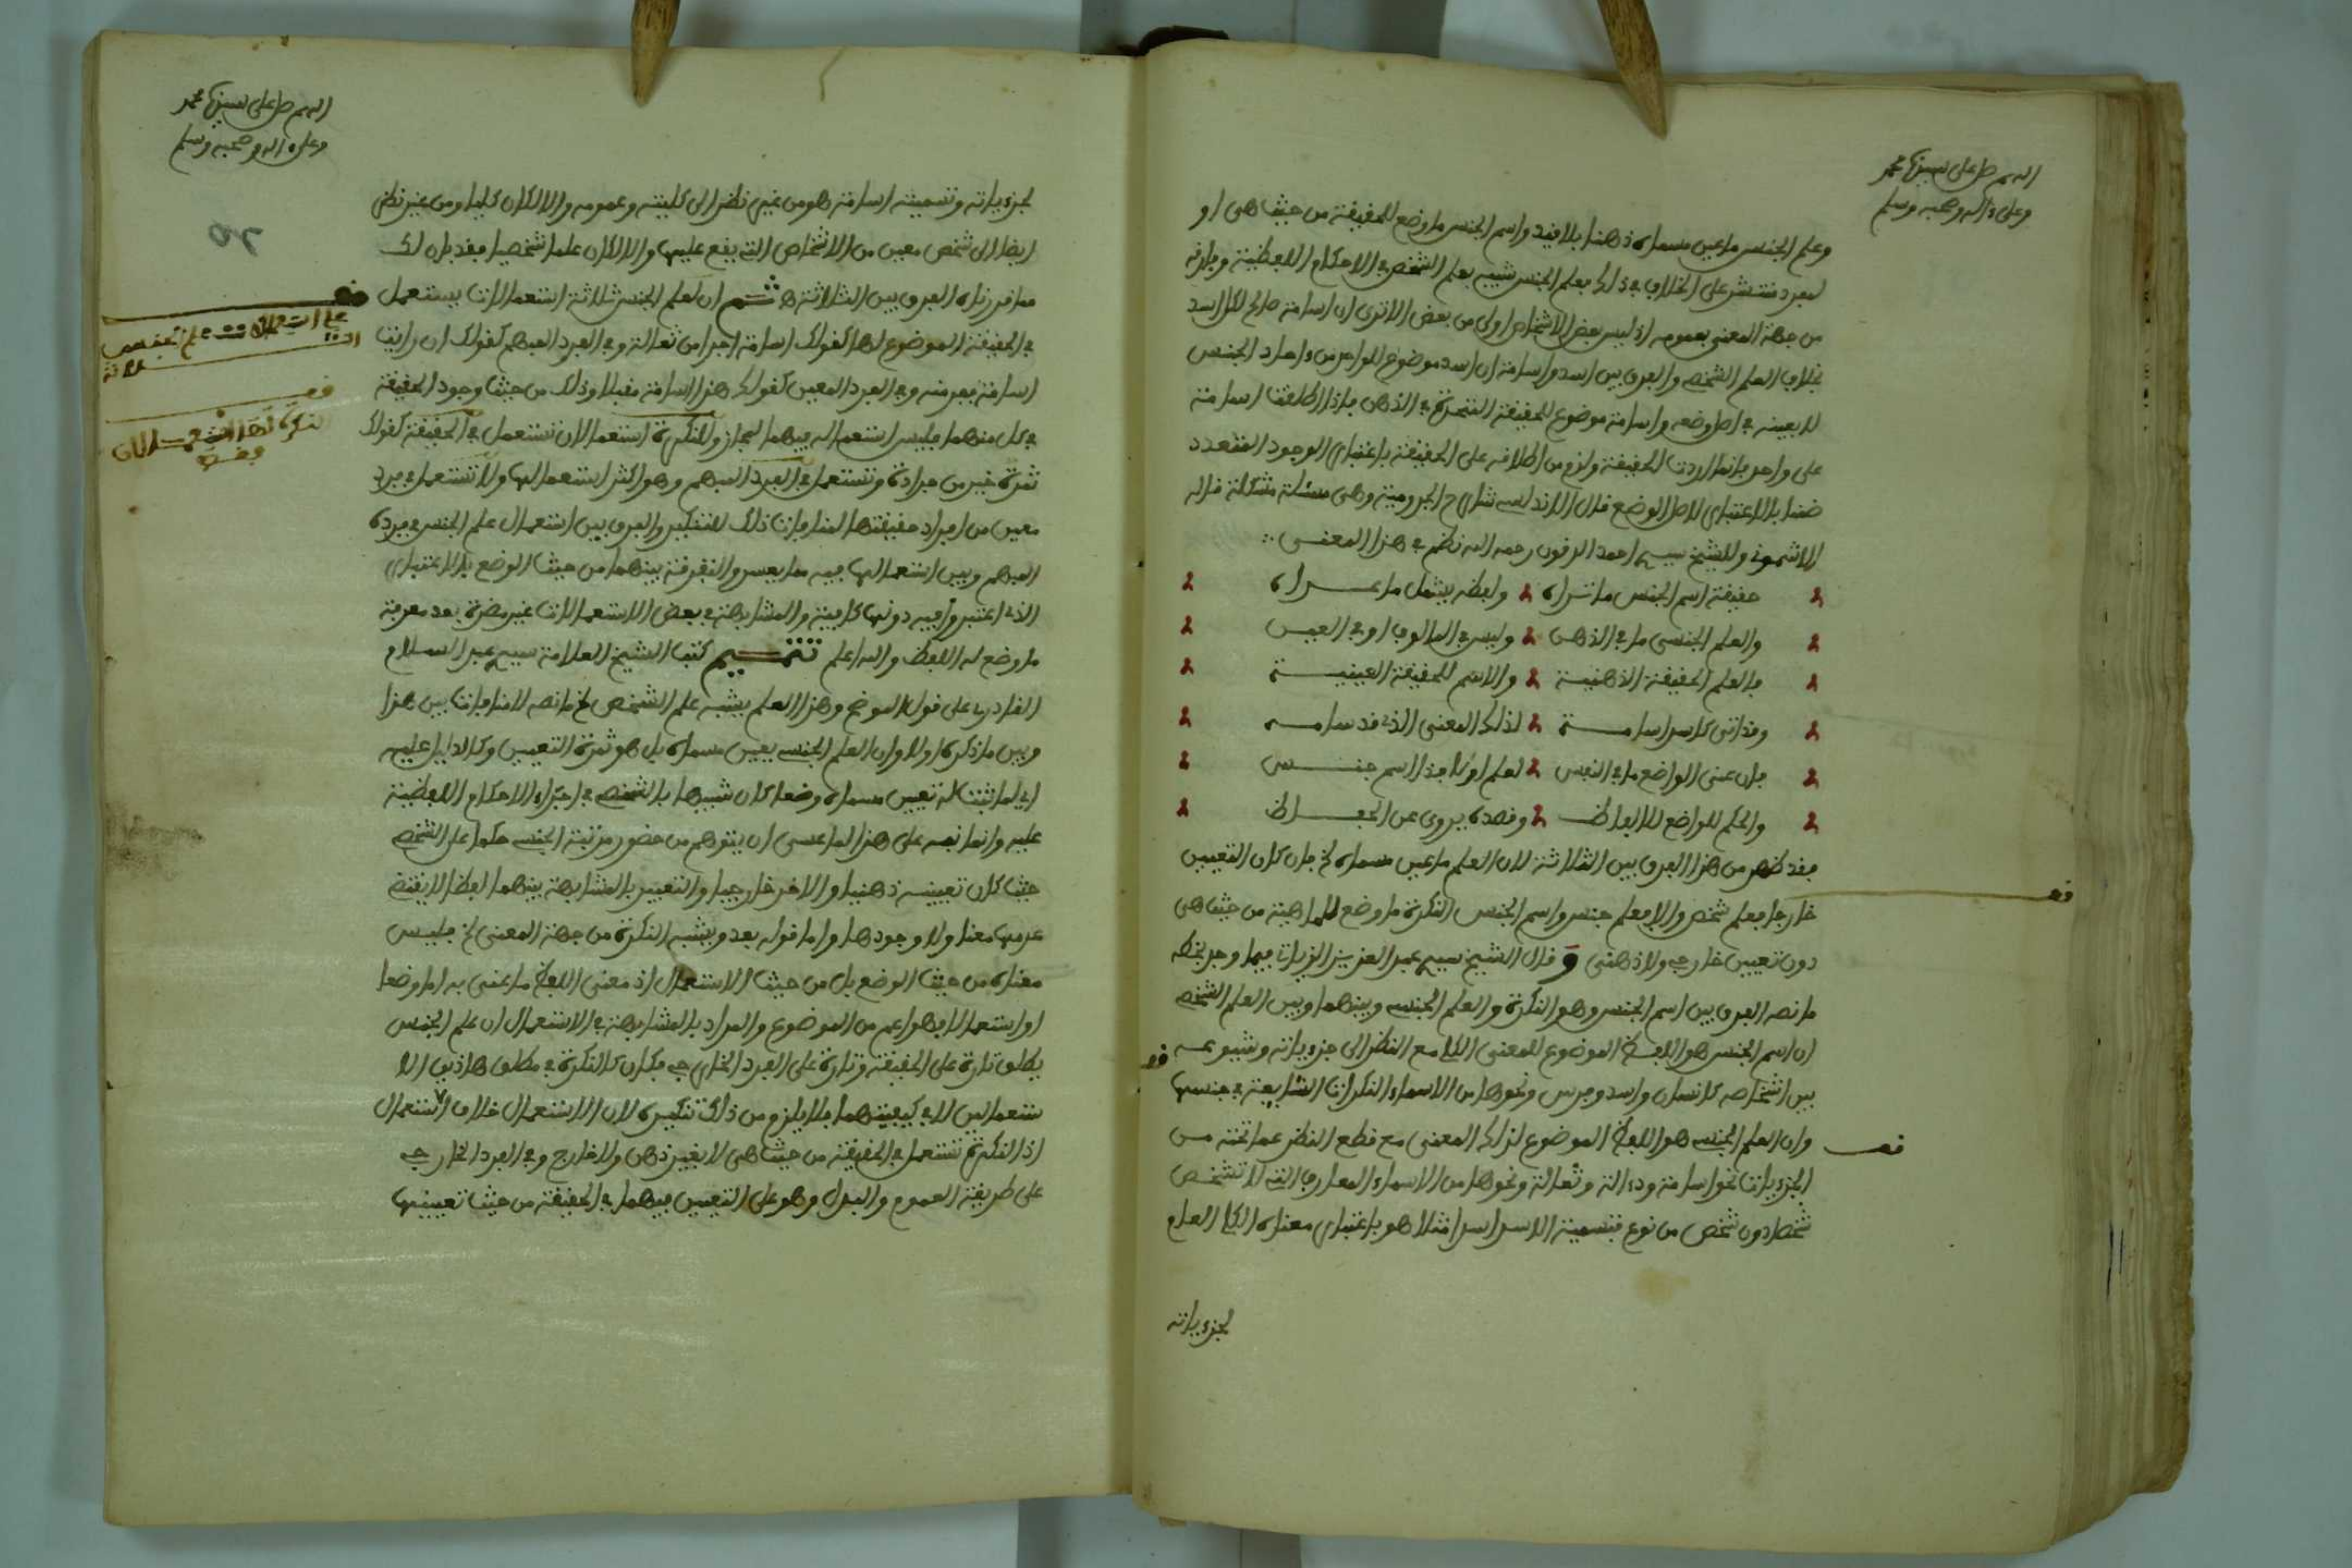 اللهم صل على سيدنا محمد
وعلى ءاله وصحبه وسلم
وعلم الجنس ما عين مسماه ذهنا بلا قيد واسم الجنس ما وضع للحقيقة من حيث هى او
لفرد منتشر على الخلاف فى ذلك فعلم الجنس شبيه بعلم الشخص فى الاحكام اللفظية وفارقه
من جهة المعنى بعمومه اذ ليس بعض الاشخاص اولى من بعض الا ترى ان اسامة صالح لكل اسد
بخلاف العلم الشخصى والفرق بين اسد واسامة ان اسد موضوع للواحد من ءاحاد الجنس
لا بعينه فى اصل وضعه واسامة موضوع للحقيقة المتحدة فى الذهن فاذا اطلقت اسامة
على واحد فانما اردت الحقيقة ولزم من اطلاقه على الحقيقة باعتبار الوجود التعدد
ضمنا لا باعتبار اصل الوضع قال الاندلسى شارح الجزولية وهى مسئلة مشكلة قاله
الاشمونى وللشيخ سيدى احمد الزقون رحمه الله نظم فى هذا المعنى
حقيقة اسم الجنس ما تراه ولفظه يشمل ما عداه
والعلم الجنسى ما فى الذهن وليس فى المالوف او فى العين
فالعلم الحقيقة الذهنية والاسم للحقيقة العينية
وقد اتى كاسد اسامة لذلك المعنى الذى قد سامه
فان عنى الواضع ما فى النفس لعلم اولا فذا اسم جنس
والحكم للواضع للالفاظ وقصده يروى عن الحفاظ
فقد ظهر من هذا الفرق بين الثلاثة لان العلم ما عين مسماه الخ فان كان التعيين
خارجا فعلم شخص والا فعلم جنس واسم الجنس النكرة ما وضع للماهية من حيث هى
دون تعيين خارجى ولا ذهنى و قال الشيخ سيدى عبد العزيز الزياتى فيما وجد بخطه
ما نصه الفرق بين اسم الجنس وهو النكرة والعلم الجنسى وبينهما وبين العلم الشخصى
ان اسم الجنس هو اللفظ الموضوع للمعنى الكلى مع النظر الى جزءياته وشيوعه
بين اشخاصه كانسان واسد وفرس ونحوها من الاسماء النكرات الشايعة فى جنسها
وان العلم الجنسى هو اللفظ الموضوع لذلك المعنى مع قطع النظر عما تحته من
الجزءيات نحو اسامة وذءالة وثعالة ونحوها من الاسماء المعارف التى لا تشخص
شخصا دون شخص من نوع فتسمية الاسد اسدا مثلا هو باعتبار معناه الكلى العام
لجزءياته
اللهم صل على سيدنا محمد
وعلى ءاله وصحبه وسلم
لجزءياته وتسميته اسامة هو من غير نظر الى كليته وعمومه والا لكان كليا ومن غير نظر
ايضا الى شخص معين من الاشخاص التى يقع عليها والا لكان علما شخصيا فقد بان لك
مما قررناه الفرق بين الثلاثة ه ثم ان لعلم الجنس ثلاثة استعمالات يستعمل
فى الحقيقة الموضوع لها كقولك اسامة اجرا من ثعالة وفى الفرد المبهم كقولك ان رايت
اسامة ففر منه وفى الفرد المعين كقولك هذا اسامة مقبلا وذلك من حيث وجود الحقيقة
فى كل منهما فليس استعماله فيهما بمجاز وللنكرة استعمالان تستعمل فى الحقيقة كقولك
ثمرة خير من جرادة وتستعمل فى الفرد المبهم وهو اكثر استعمالها ولا تستعمل فى فرد
معين من افراد حقيقتها لمنافات ذلك للتنكير والفرق بين استعمال علم الجنس فى فرده
المبهم وبين استعمالها فيه مما يعسر والتفرقة بينهما من حيث الوضع بالاعتبار
الذى اعتبروا فيه دونها كافية والمشابهة فى بعض الاستعمالات غير مضرة بعد معرفة
ما وضع له اللفظ والله اعلم تتميم كتب الشيخ العلامة سيدى عبد السلام
القادرى على قول الموضح وهذا العلم يشبه علم الشخص الخ ما نصه لا منافات بين هذا
وبين ما ذكره اولا وان العلم الجنسى يعين مسماه بل هو ثمرة التعيين وكالدليل عليه
اى لما ثبت له تعيين مسماه وضعا كان شبيها بالشخصى فى اجراء الاحكام اللفظية
عليه وانما نبه على هذا لما عسى ان يتوهم من حضور مزية الجنسى حكما على الشخصى
حيث كان تعيينه ذهنيا والاخر خارجيا والتعبير بالمشابهة بينهما لفظا لا يقتضى
عدمها معنا ولا وجودها واما قوله بعد ويشبه النكرة من جهة المعنى الخ فليس
معناه من حيث الوضع بل من حيث الاستعمال اذ معنى اللفظ ما عنى به اما وضعا
او استعمالا فهو اعم من الموضوع والمراد بالمشابهة فى الاستعمال ان علم الجنس
يطلق تارة على الحقيقة وتارة على الفرد الخارجى فكان كالنكرة فى مطلق هاذين الا
ستعمالين لا فى كيفيتهما فلا يلزم من ذلك تنكيره لان الاستعمال خلاف الاستعمال
اذ النكرة تستعمل فى الحقيقة من حيث هى لا بقيد ذهن ولا خارج وفى الفرد الخارجى
على طريقة العموم والبدل وهو على التعيين فيهما فى الحقيقة من حيث تعيينها
علم الجنس
ثلاثة
النكرة لها استعمالان